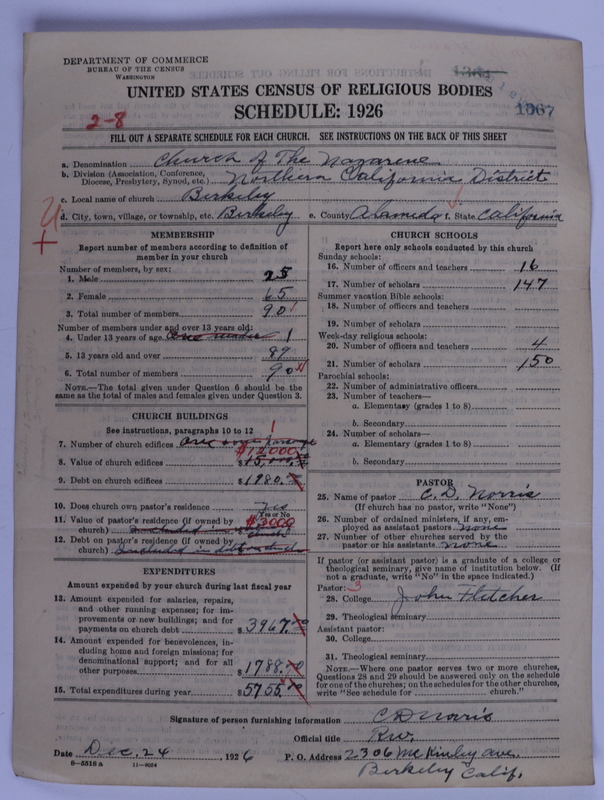 DEPARTMENT OF COMMERCE
BUREAU OF THE CENSUS
WASHINGTON
1364
1067
UNITED STATES CENSUS OF RELIGIOUS BODIES
SCHEDULE: 1926
2-8
FILL OUT A SEPARATE SCHEDULE FOR EACH CHURCH. SEE INSTRUCTIONS ON THE BACK OF THIS SHEET
a. Denomination Church of The Nazarene
b. Division (Association, Conference, Diocese, Presbytery, Synod, etc.) Northern California District
c. Local name of church Berkeley
d. City, town, village, or township, etc. Berkeley e. County Alameda f. State California
MEMBERSHIP
Report number of members according to definition of
member in your church
Number of members, by sex:
1. Male 25
2. Female 65
3. Total number of members 90
Number of members under and over 13 years old:
4. Under 13 years of age 1
5. 13 years old and over 89
6. Total number of members 90
NOTE.—The total given under Question 6 should be the
same as the total of males and females given under Question 3.
CHURCH BUILDINGS
See instructions, paragraphs 10 to 12
7. Number of church edifices 1
$12000
8. Value of church edifices $15,000.00
9. Debt on church edifices $1980.00
10. Does church own pastor's residence Yes
Yes or No
11. Value of pastor's residence (if owned by
church) $3000 Included in church
12. Debt on pastor's residence (if owned by
church) Included in debt on church
EXPENDITURES
Amount expended by your church during last fiscal year
13. Amount expended for salaries, repairs,
and other running expenses; for im-
provements or new buildings; and for
payments on church debt $3967.00
14. Amount expended for benevolences, in-
cluding home and foreign missions; for
denominational support; and for all
other purposes $1788.00
15. Total expenditures during year $5755.00
CHURCH SCHOOLS
Report here only schools conducted by this church
Sunday schools:
16. Number of officers and teachers 16
17. Number of scholars 147
Summer vacation Bible schools:
18. Number of officers and teachers
19. Number of scholars
Week-day religious schools:
20. Number of officers and teachers 4
21. Number of scholars 150
Parochial schools:
22. Number of administrative officers
23. Number of teachers—
a. Elementary (grades 1 to 8)
b. Secondary
24. Number of scholars—
a. Elementary (grades 1 to 8)
b. Secondary
PASTOR
25. Name of pastor C. D. Norris
(If church has no pastor, write "None")
26. Number of ordained ministers, if any, em-
ployed as assistant pastors none
27. Number of other churches served by the
pastor or his assistants none
If pastor (or assistant pastor) is a graduate of a college or
theological seminary, give name of institution below. (If
not a graduate, write "No" in the space indicated.)
Pastor: 3
28. College John Fletcher
29. Theological seminary
Assistant pastor:
30. College
31. Theological seminary
NOTE.—Where one pastor serves two or more churches,
Questions 28 and 29 should be answered only on the schedule
for one of the churches; on the schedules for the other churches,
write "See schedule for church."
Signature of person furnishing information C D Norris
Official title Rev.
Date Dec. 24, 1926 P. O. Address 2306 McKinley ave.
Berkeley Calif.
8-5518 a 11-9054